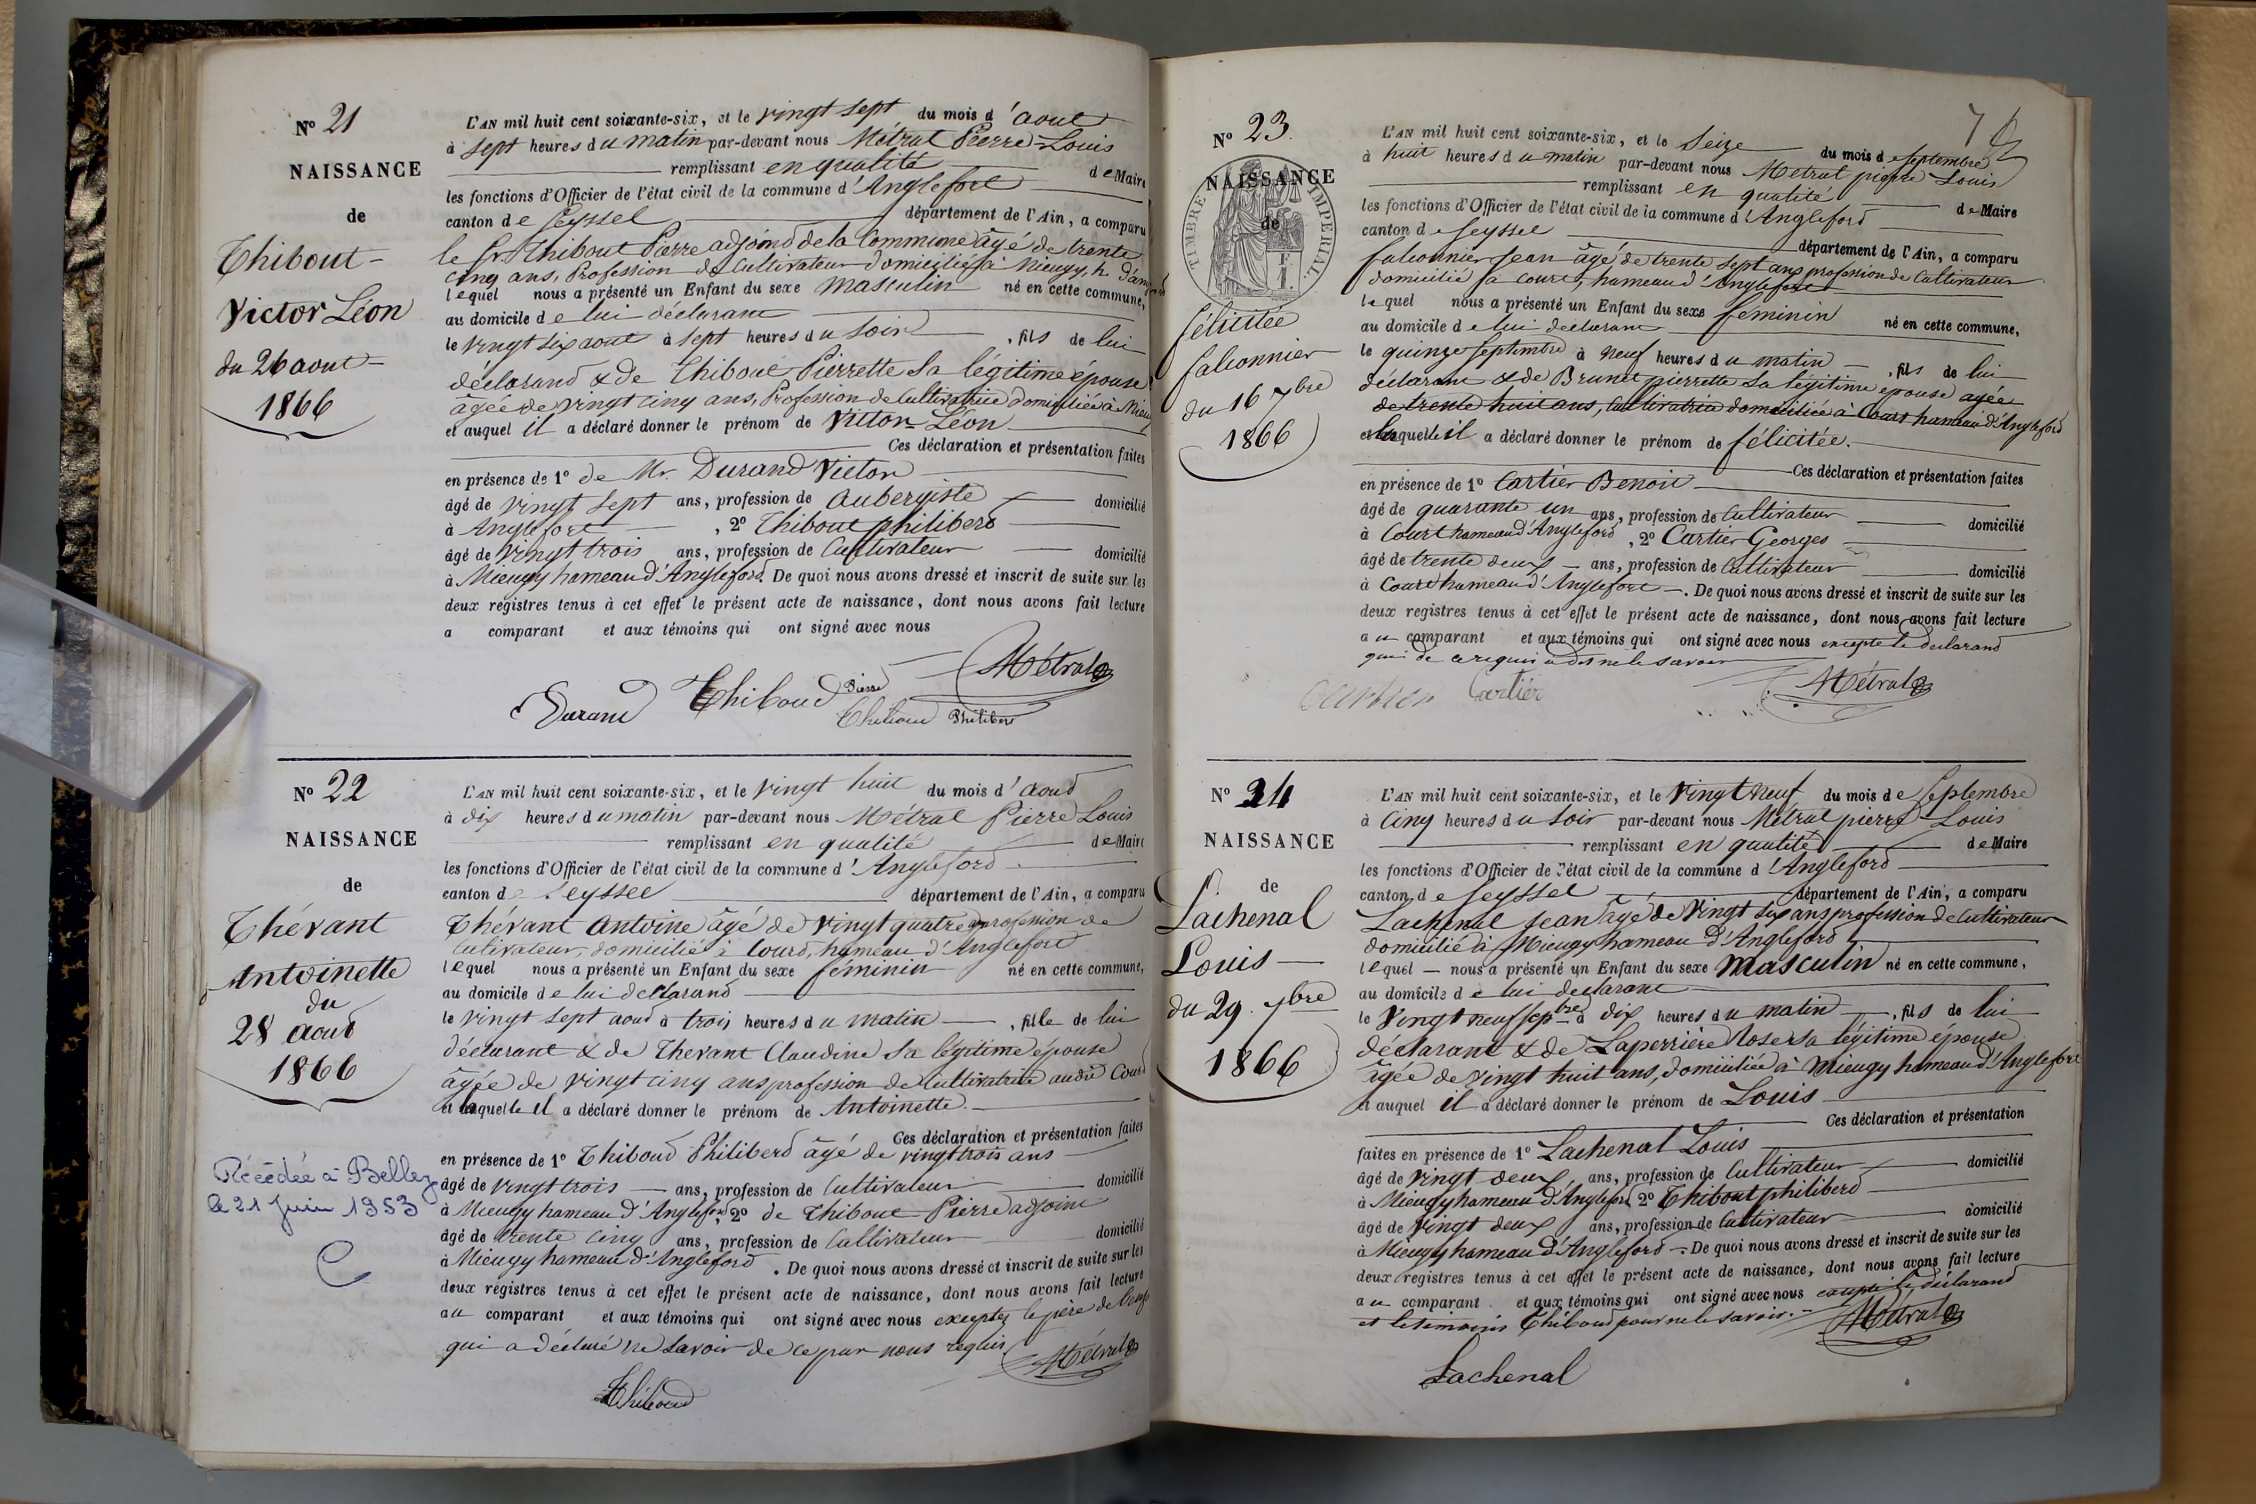 Nº 21
NAISSANCE
de
Thibout
Victor Léon
du 26 aout
1866
L'AN mil huit cent soixante-six, et le vingt sept du mois d'aout
à sept heures du matin par-devant nous Métral Pierre Louis
remplissant en qualité de Maire
les fonctions d'Officier de l'état civil de la commune d'Anglefort
canton de Seyssel département de l'Ain, a comparu
le Sr Thibout Pierre adjoind de la Commune âgé de trente
cinq ans, Profession de Cultivateur domicilié à Mieugy, h.
lequel nous a présenté un Enfant du sexe masculin né en cette commune,
au domicile de lui déclarant
le vingt six aout à sept heures du soir, fils de lui
déclarand & de Thibout Pierrette sa légitime épouse
âgée de vingt cinq ans, Profession de Cultivatrice domiciliée à
et auquel il a déclaré donner le prénom de Victor Léon
Ces déclaration et présentation faites
en présence de 1º de Mr. Durand Victor
âgé de vingt sept ans, profession de aubergiste domicilié
à Anglefort, 2º Thibout philiberd
âgé de vingt trois ans, profession de Cultivateur domicilié
à Mieugy hameau d'Angleford. De quoi nous avons dressé et inscrit de suite sur les
deux registres tenus à cet effet le présent acte de naissance, dont nous avons fait lecture
a comparant et aux témoins qui ont signé avec nous
Métral
Durand Thiboud Pierre
Thiboud Philiberd
Nº 22
NAISSANCE
de
Thévant
Antoinette
du
28 aoud
1866
Décédée à Belley
le 21 Juin 1953
L'AN mil huit cent soixante-six, et le vingt huit du mois d'aoud
à dix heures du matin par-devant nous Métral Pierre Louis
remplissant en qualité de Maire
les fonctions d'Officier de l'état civil de la commune d'Angleford
canton de Seyssel département de l'Ain, a comparu
Thévant Antoine âgé de vingt quatre profession de
Cultivateur, domicilié à Courd, hameau d'Anglefort
lequel nous a présenté un Enfant du sexe féminin né en cette commune,
au domicile de lui déclarand
le vingt sept aoud à trois heures du matin, fille de lui
déclarant & de Thevant Claudine sa légitime épouse
âgée de vingt cinq ans profession de Cultivatrice audit Courd
et laquelle il a déclaré donner le prénom de Antoinette.
Ces déclaration et présentation faites
en présence de 1º Thiboud Philiberd âgé de vingt trois ans
âgé de vingt trois ans, profession de Cultivateur domicilié
à Mieugy hameau d'Angleford, 2º de Thibout Pierre adjoint
âgé de trente cinq ans, profession de Cultivateur domicilié
à Mieugy hameau d'Angleford. De quoi nous avons dressé et inscrit de suite sur les
deux registres tenus à cet effet le présent acte de naissance, dont nous avons fait lecture
au comparant et aux témoins qui ont signé avec nous exceptez le père de
qui a déclaré ne savoir de ce par nous requis.
Métral
Thiboud
76
Nº 23.
NAISSANCE
de
TIMBRE IMPÉRIAL
félicitée
falconnier
du 16 7bre
1866
L'AN mil huit cent soixante-six, et le Seize du mois de Septembre
à huit heures du matin par-devant nous Métral pierre Louis
remplissant en qualité de Maire
les fonctions d'Officier de l'état civil de la commune d'Angleford
canton de Seyssel département de l'Ain, a comparu
falconnier Jean âgé de trente sept ans profession de Cultivateur
domicilié à Court, hameau d'Anglefort
lequel nous a présenté un Enfant du sexe féminin né en cette commune,
au domicile de lui déclarant
le quinze Septembre à neuf heures du matin, fils de lui
déclarant & de Brunet pierrette sa légitime épouse agée
de trente huit ans, Cultivatrice domiciliée à Court hameau d'Angleford
et laquelle il a déclaré donner le prénom de félicitée.
Ces déclaration et présentation faites
en présence de 1º Cartier Benoit
âgé de quarante un ans, profession de Cultivateur domicilié
à Court hameau d'Angleford, 2º Cartier Georges
âgé de trente deux ans, profession de Cultivateur domicilié
à Court hameau d'Anglefort. De quoi nous avons dressé et inscrit de suite sur les
deux registres tenus à cet effet le présent acte de naissance, dont nous avons fait lecture
au comparant et aux témoins qui ont signé avec nous excepté le déclarand
qui de ce requis a dit ne le savoir
Cartier Cartier Métral
Nº 24
NAISSANCE
de
Lachenal
Louis
du 29. 7bre
1866
L'AN mil huit cent soixante-six, et le Vingt neuf du mois de Septembre
à Cinq heures du soir par-devant nous Métral pierre Louis
remplissant en qualité de Maire
les fonctions d'Officier de l'état civil de la commune d'Angleford
canton de Seyssel département de l'Ain, a comparu
Lachenal Jean âgé de Vingt six ans profession de Cultivateur
domicilié à Mieugy hameau d'Angleford
lequel nous a présenté un Enfant du sexe Masculin né en cette commune,
au domicile de lui déclarant
le Vingt neuf sepbre à dix heures du matin, fils de lui
déclarant & de Laperrière Rose sa légitime épouse
âgée de vingt huit ans, domiciliée à Mieugy hameau d'Anglefort
et auquel il a déclaré donner le prénom de Louis
Ces déclaration et présentation
faites en présence de 1º Lachenal Louis
âgé de Vingt deux ans, profession de Cultivateur domicilié
à Mieugy hameau d'Angleford 2º Thibout philiberd
âgé de vingt deux ans, profession de Cultivateur domicilié
à Mieugy hameau d'Angleford. De quoi nous avons dressé et inscrit de suite sur les
deux registres tenus à cet effet le présent acte de naissance, dont nous avons fait lecture
au comparant et aux témoins qui ont signé avec nous excepté le déclarand
et le témoin Thiboud pour ne le savoir.
Métral
Lachenal